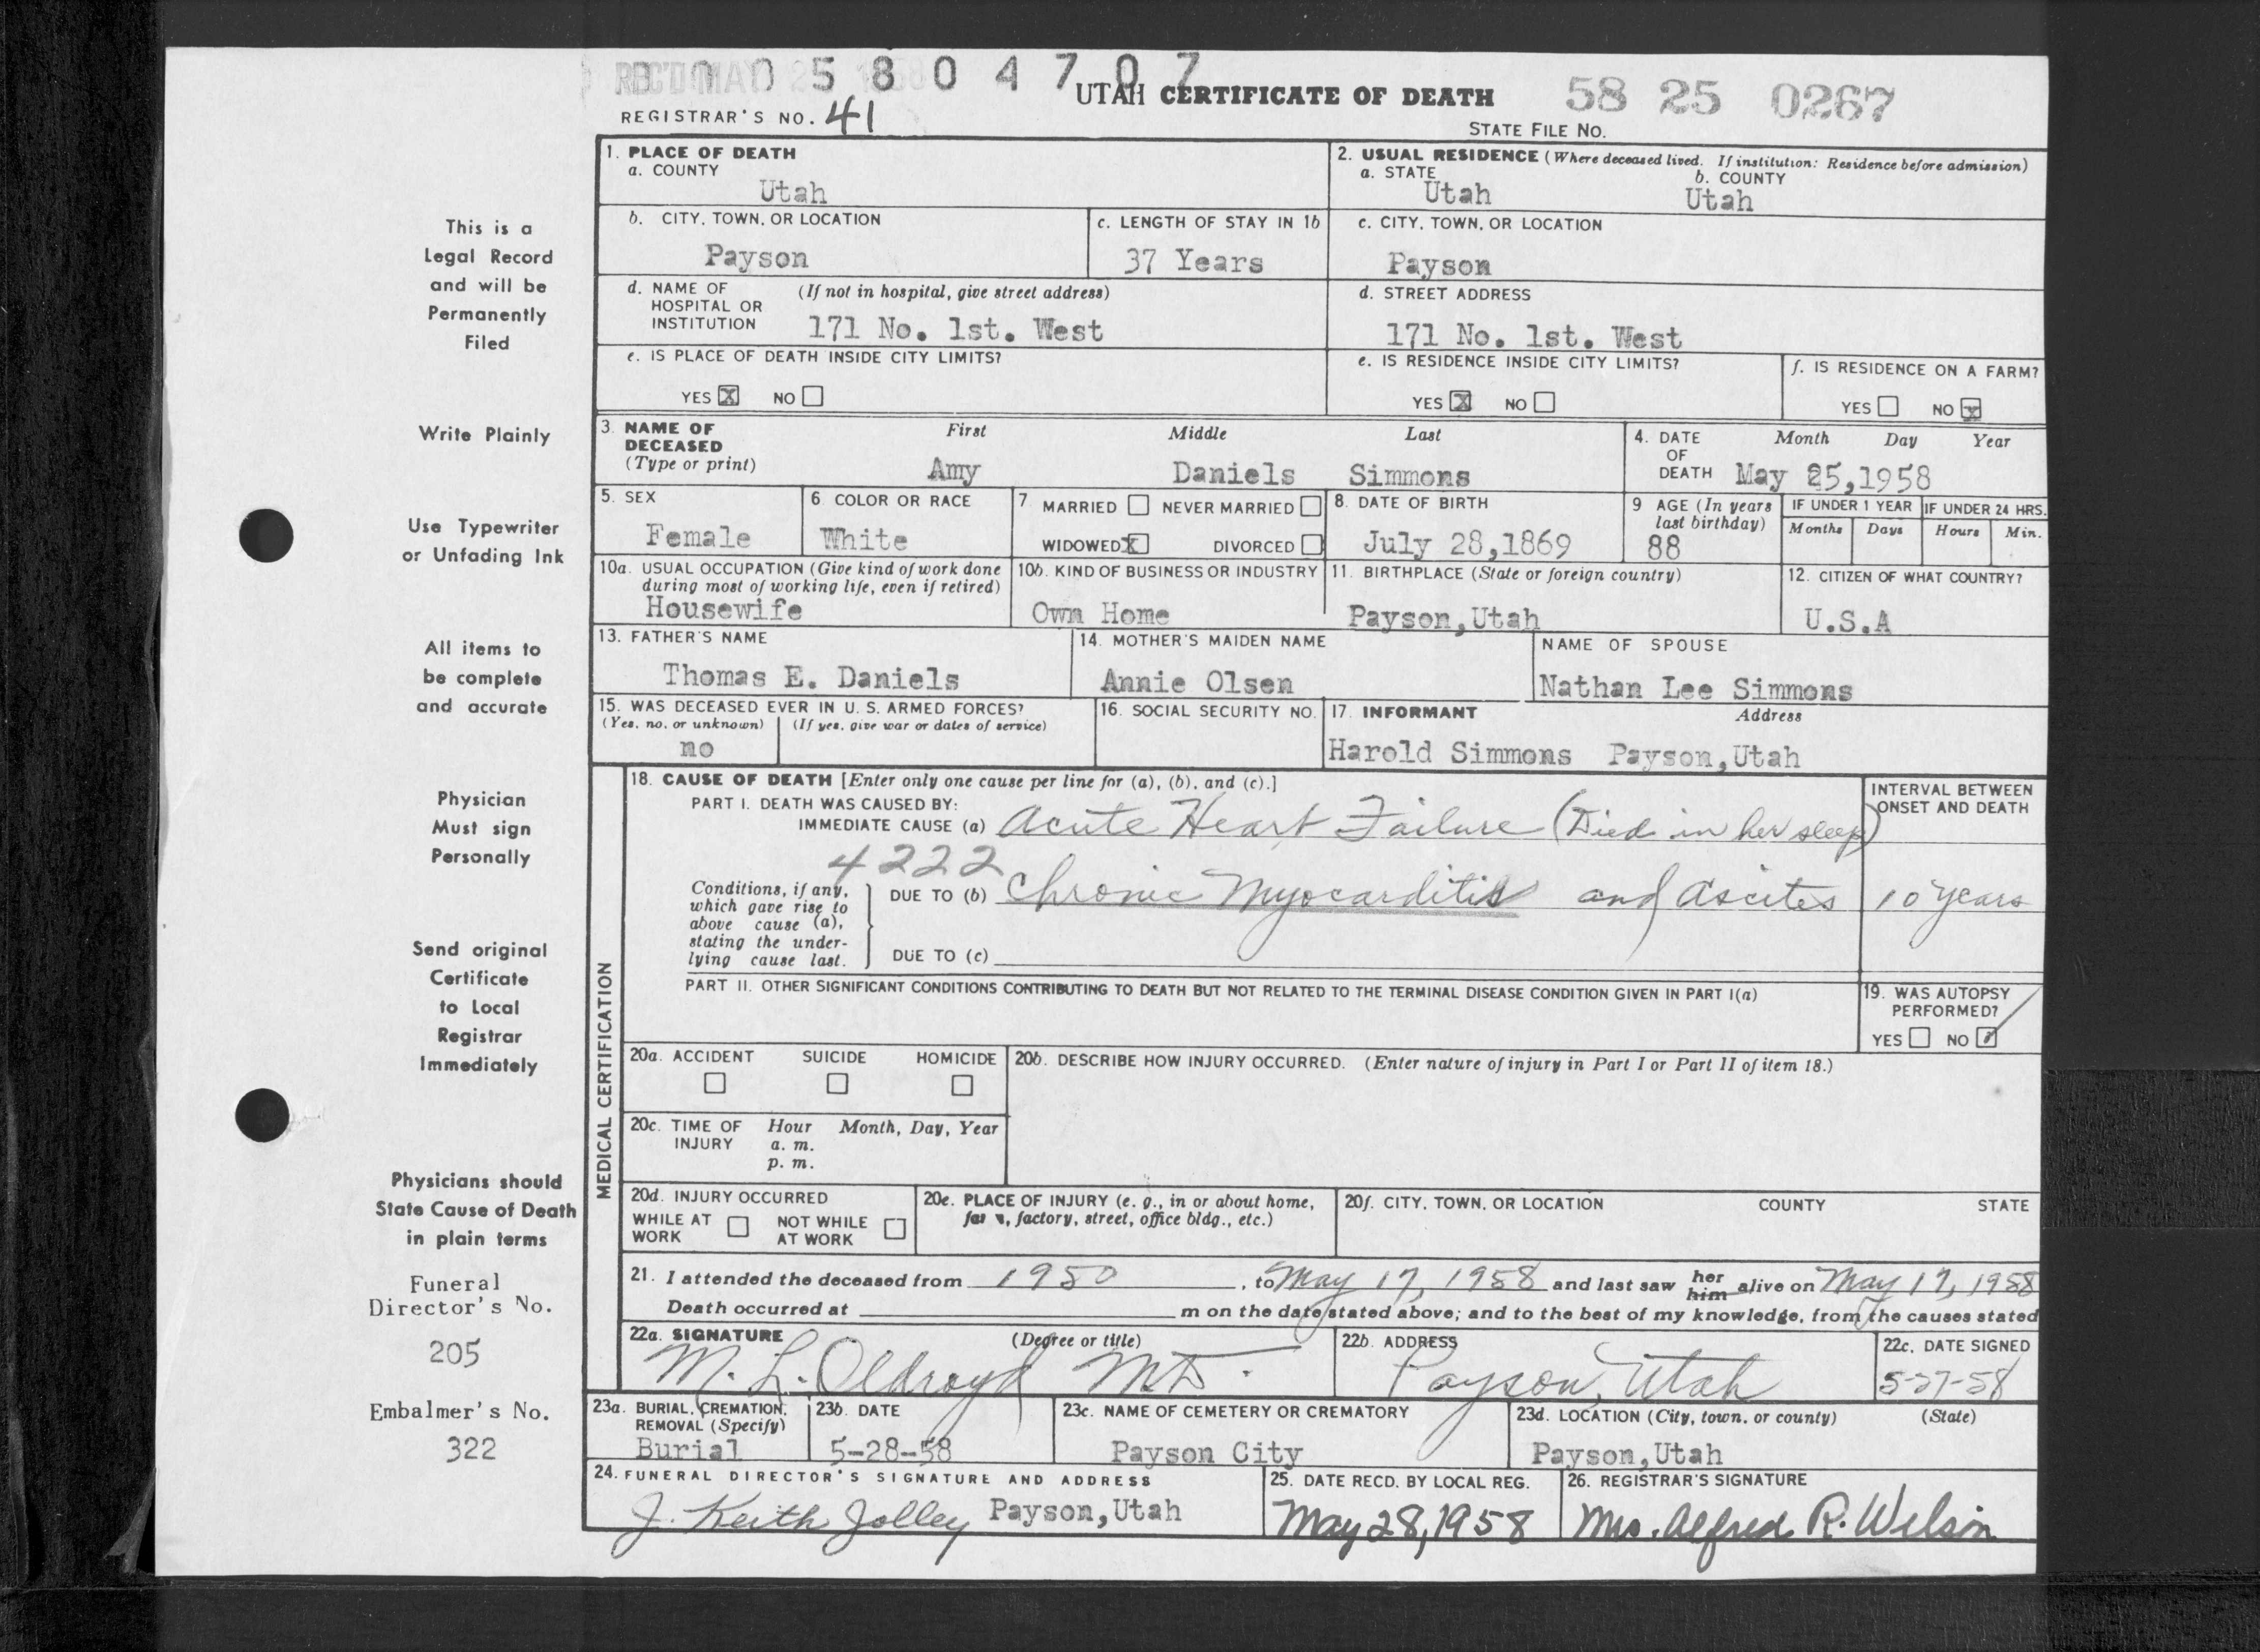 REC'D MAY 2 1958
0 0 5 8 0 4 7 0 7
UTAH CERTIFICATE OF DEATH
58 25 0267
REGISTRAR'S NO. 41
STATE FILE NO.
1. PLACE OF DEATH
a. COUNTY
Utah
2. USUAL RESIDENCE (Where deceased lived. If institution: Residence before admission)
a. STATE b. COUNTY
Utah Utah
b. CITY, TOWN, OR LOCATION
Payson
c. LENGTH OF STAY IN 1b
37 Years
c. CITY, TOWN, OR LOCATION
Payson
d. NAME OF HOSPITAL OR INSTITUTION (If not in hospital, give street address)
171 No. 1st. West
d. STREET ADDRESS
171 No. 1st. West
e. IS PLACE OF DEATH INSIDE CITY LIMITS?
YES X NO
e. IS RESIDENCE INSIDE CITY LIMITS?
YES X NO
f. IS RESIDENCE ON A FARM?
YES NO X
3. NAME OF DECEASED (Type or print)
First Middle Last
Amy Daniels Simmons
4. DATE OF DEATH Month Day Year
May 25,1958
5. SEX
Female
6 COLOR OR RACE
White
7. MARRIED NEVER MARRIED
WIDOWED X DIVORCED
8. DATE OF BIRTH
July 28,1869
9 AGE (In years last birthday)
88
IF UNDER 1 YEAR IF UNDER 24 HRS.
Months Days Hours Min.
10a. USUAL OCCUPATION (Give kind of work done during most of working life, even if retired)
Housewife
10b. KIND OF BUSINESS OR INDUSTRY
Own Home
11. BIRTHPLACE (State or foreign country)
Payson,Utah
12. CITIZEN OF WHAT COUNTRY?
U.S.A
13. FATHER'S NAME
Thomas E. Daniels
14. MOTHER'S MAIDEN NAME
Annie Olsen
NAME OF SPOUSE
Nathan Lee Simmons
15. WAS DECEASED EVER IN U. S. ARMED FORCES?
(Yes, no, or unknown) (If yes, give war or dates of service)
no
16. SOCIAL SECURITY NO.
17. INFORMANT Address
Harold Simmons Payson,Utah
MEDICAL CERTIFICATION
18. CAUSE OF DEATH [Enter only one cause per line for (a), (b), and (c).]
INTERVAL BETWEEN ONSET AND DEATH
PART I. DEATH WAS CAUSED BY:
IMMEDIATE CAUSE (a) Acute Heart Failure (Died in her sleep)
4222
Conditions, if any, which gave rise to above cause (a), stating the underlying cause last.
DUE TO (b) Chronic Myocarditis and Ascites 10 years
DUE TO (c)
PART II. OTHER SIGNIFICANT CONDITIONS CONTRIBUTING TO DEATH BUT NOT RELATED TO THE TERMINAL DISEASE CONDITION GIVEN IN PART I(a)
19. WAS AUTOPSY PERFORMED?
YES NO ✓
20a. ACCIDENT SUICIDE HOMICIDE
20b. DESCRIBE HOW INJURY OCCURRED. (Enter nature of injury in Part I or Part II of item 18.)
20c. TIME OF INJURY Hour Month, Day, Year
a. m.
p. m.
20d. INJURY OCCURRED
WHILE AT WORK NOT WHILE AT WORK
20e. PLACE OF INJURY (e. g., in or about home, farm, factory, street, office bldg., etc.)
20f. CITY, TOWN, OR LOCATION COUNTY STATE
21. I attended the deceased from 1950, to May 17, 1958 and last saw her him alive on May 17, 1958
Death occurred at m on the date stated above; and to the best of my knowledge, from the causes stated
22a. SIGNATURE (Degree or title)
M. L. Oldroyd MD.
22b. ADDRESS
Payson, Utah
22c. DATE SIGNED
5-27-58
23a. BURIAL, CREMATION, REMOVAL (Specify)
Burial
23b. DATE
5-28-58
23c. NAME OF CEMETERY OR CREMATORY
Payson City
23d. LOCATION (City, town, or county) (State)
Payson,Utah
24. FUNERAL DIRECTOR'S SIGNATURE AND ADDRESS
J. Keith Jolley Payson,Utah
25. DATE RECD. BY LOCAL REG.
May 28,1958
26. REGISTRAR'S SIGNATURE
Mrs. Alfred R. Wilson
This is a
Legal Record
and will be
Permanently
Filed
Write Plainly
Use Typewriter
or Unfading Ink
All items to
be complete
and accurate
Physician
Must sign
Personally
Send original
Certificate
to Local
Registrar
Immediately
Physicians should
State Cause of Death
in plain terms
Funeral
Director's No.
205
Embalmer's No.
322